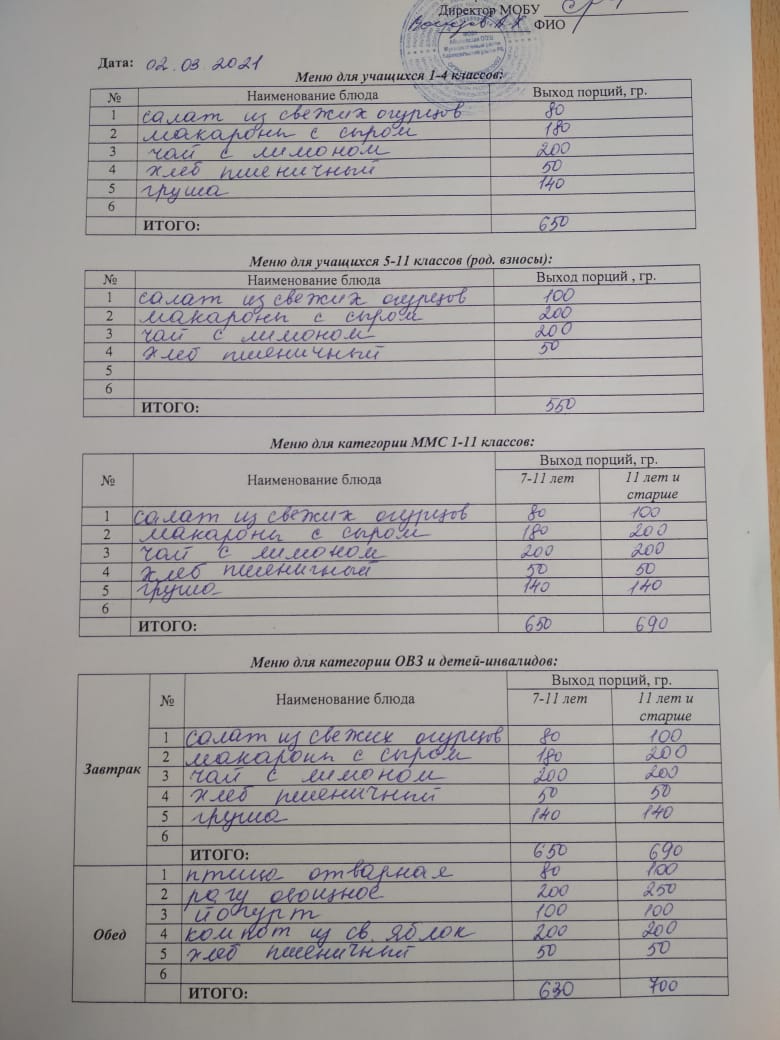 Директор МОБУ
ФИО
Дата: 02.03.2021
Меню для учащихся 1-4 классов:
№ Наименование блюда Выход порций, гр.
1 салат из свежих огурцов 80
2 макароны с сыром 180
3 чай с лимоном 200
4 хлеб пшеничный 50
5 груша 140
6
ИТОГО: 650
Меню для учащихся 5-11 классов (род. взносы):
№ Наименование блюда Выход порций , гр.
1 салат из свежих огурцов 100
2 макароны с сыром 200
3 чай с лимоном 200
4 хлеб пшеничный 50
5
6
ИТОГО: 550
Меню для категории ММС 1-11 классов:
№ Наименование блюда Выход порций, гр.
7-11 лет 11 лет и старше
1 салат из свежих огурцов 80 100
2 макароны с сыром 180 200
3 чай с лимоном 200 200
4 хлеб пшеничный 50 50
5 груша 140 140
6
ИТОГО: 650 690
Меню для категории ОВЗ и детей-инвалидов:
№ Наименование блюда Выход порций, гр.
7-11 лет 11 лет и старше
Завтрак
1 салат из свежих огурцов 80 100
2 макароны с сыром 180 200
3 чай с лимоном 200 200
4 хлеб пшеничный 50 50
5 груша 140 140
6
ИТОГО: 650 690
Обед
1 птица отварная 80 100
2 рагу овощное 200 250
3 йогурт 100 100
4 компот из св. яблок 200 200
5 хлеб пшеничный 50 50
6
ИТОГО: 630 700